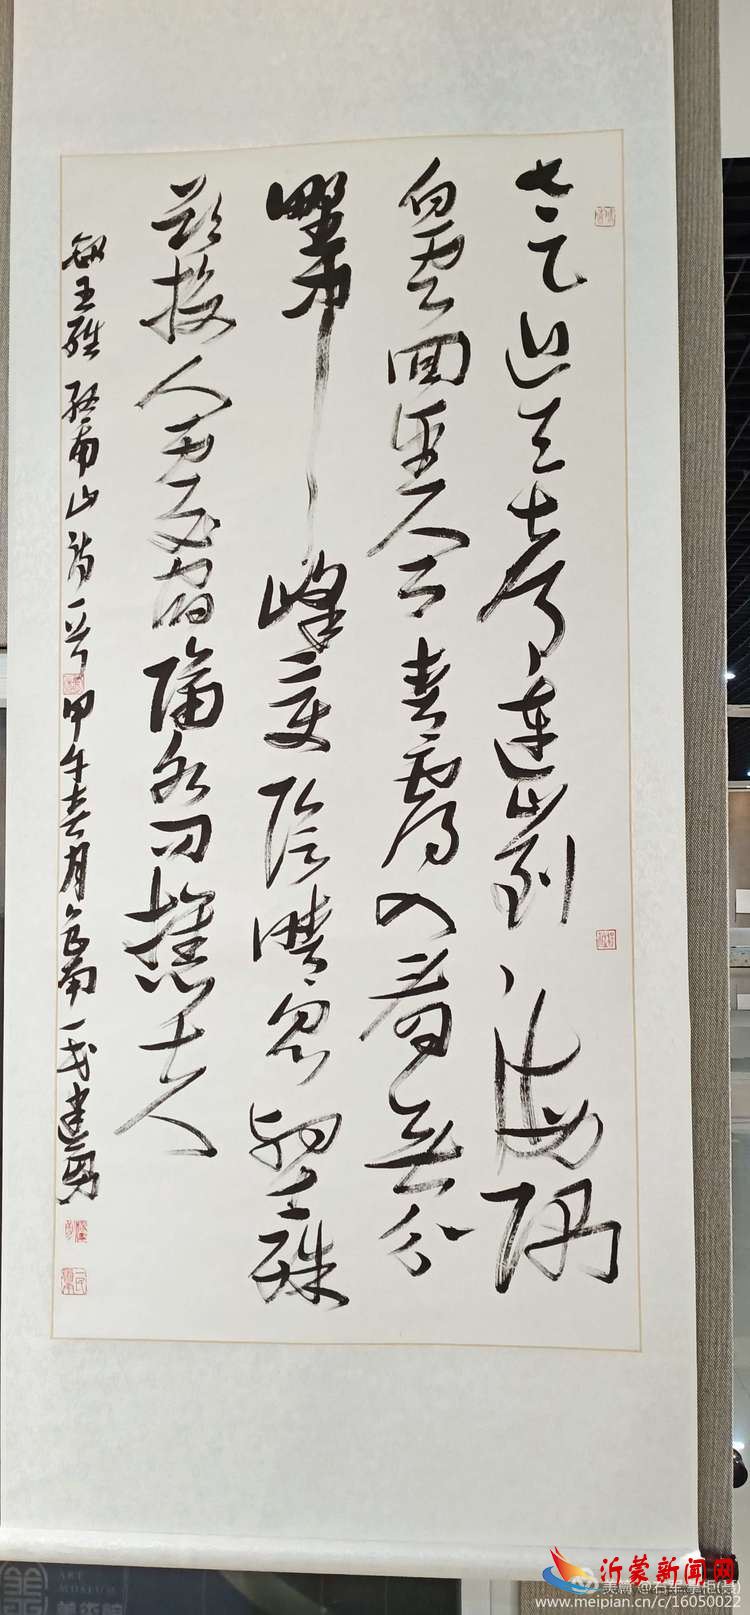 太乙近天都連山到海隅
白雲回望合青靄入看無分
野中峰變陰晴衆壑殊
欲投人處宿隔水問樵夫
錄王維終南山詩一首 甲午春月
ART
MUSEUM
美術館
沂蒙新闻网
美篇
www.meipian.cn/c/16050022